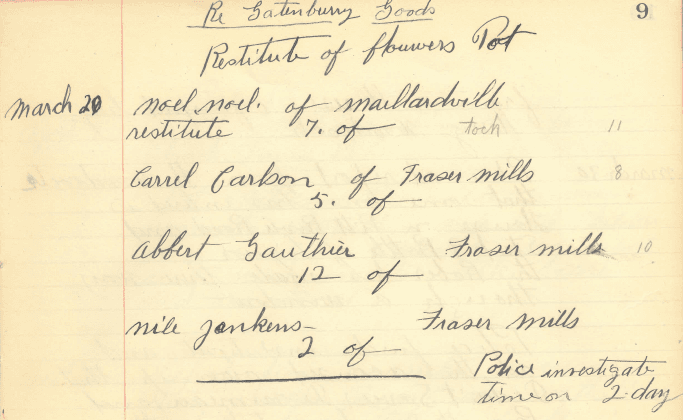 9
Re Gatenburry Goods
Restitute of flowers Pot
March 20 noel noel. of maillardville
restitute 7. of toch 11
Carrel Carlson of Fraser mills 8
5. of
Abbert Gauthier Fraser mills 10
12 of
nile Jenkens - Fraser Mills
2 of
Police investigate
time on 2 day